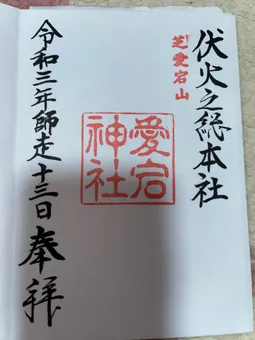 伏火之総本社
芝愛宕山
愛宕神社
奉拝
令和三年師走十三日